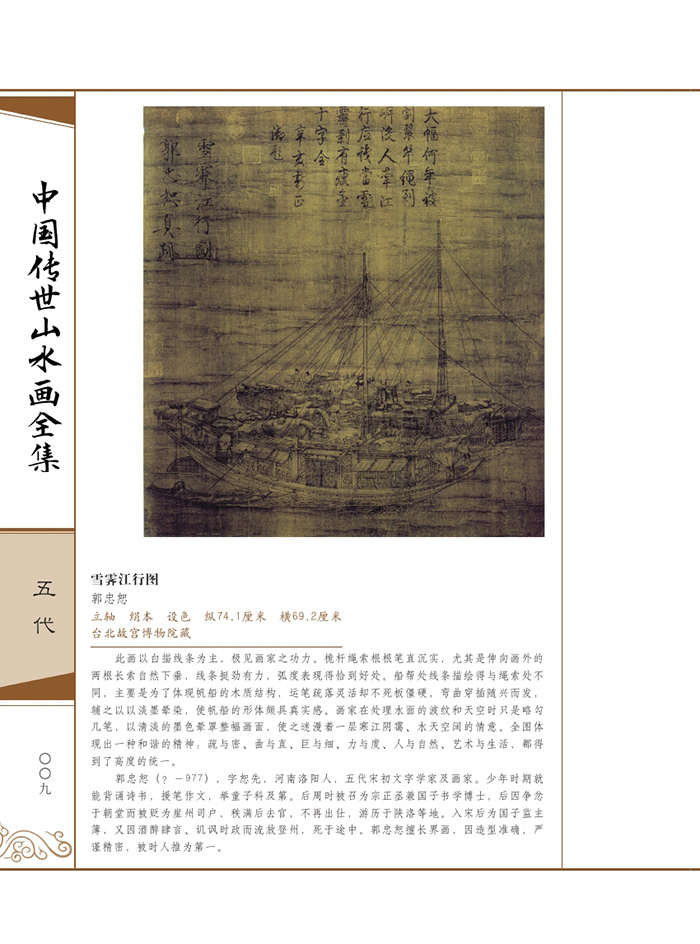 中国传世山水画全集
五代
〇〇九
大幅何年被
割裂华绳到
人牵江
行应识当雪
霁剩有亥金
十字全
辛亥新正
御题
雪霁江行图
郭忠恕真迹
雪霁江行图
郭忠恕
立轴 绢本 设色 纵74.1厘米 横69.2厘米
台北故宫博物院藏
此画以白描线条为主，极见画家之功力。桅杆绳索根根笔直沉实，尤其是伸向画外的
两根长索自然下垂，线条挺劲有力，弧度表现得恰到好处。船帮处线条描绘得与绳索处不
同，主要是为了体现帆船的木质结构，运笔疏落灵活却不死板僵硬，弯曲穿插随兴而发，
辅之以以淡墨晕染，使帆船的形体颇具真实感。画家在处理水面的波纹和天空时只是略勾
几笔，以清淡的墨色晕罩整幅画面，使之迷漫着一层寒江阴霭、水天空阔的情意。全图体
现出一种和谐的精神：疏与密、曲与直、巨与细、力与度、人与自然、艺术与生活，都得
到了高度的统一。
郭忠恕（？－977），字恕先，河南洛阳人，五代宋初文字学家及画家。少年时期就
能背诵诗书，援笔作文，举童子科及第。后周时被召为宗正丞兼国子书学博士，后因争忿
于朝堂而被贬为崖州司户，秩满后去官，不再出仕，游历于陕洛等地。入宋后为国子监主
簿，又因酒醉肆言、讥讽时政而流放登州，死于途中。郭忠恕擅长界画，因造型准确，严
谨精密，被时人推为第一。